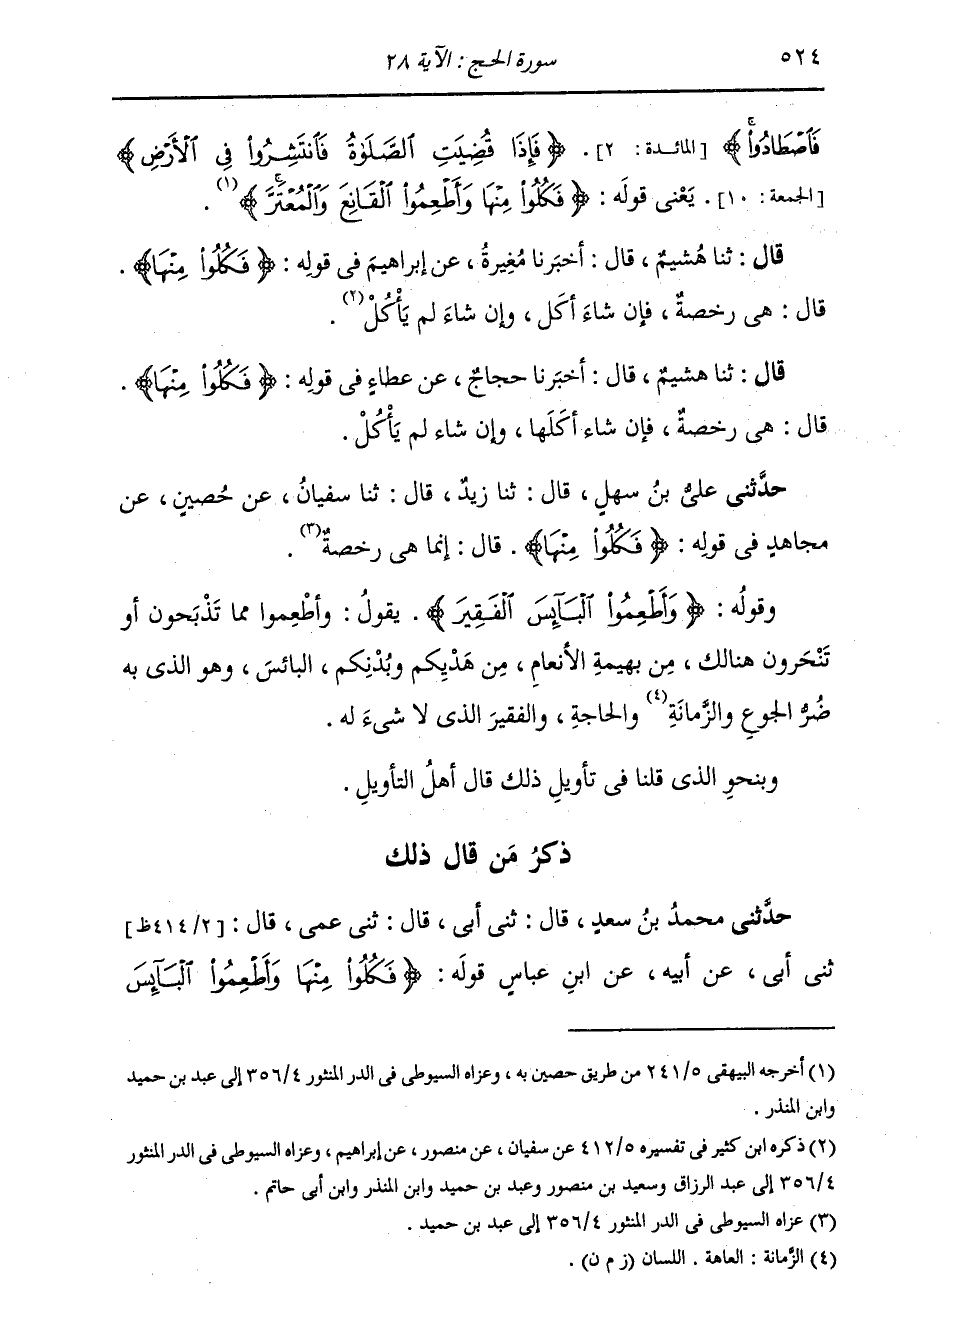 ٥٢٤
سورة الحج : الآية ٢٨
فَٱصْطَادُوا۟﴾ [المائدة : ٢] . ﴿فَإِذَا قُضِيَتِ ٱلصَّلَوٰةُ فَٱنتَشِرُوا۟ فِى ٱلْأَرْضِ﴾
[الجمعة : ١٠] . يَعْنى قولَه : ﴿فَكُلُوا۟ مِنْهَا وَأَطْعِمُوا۟ ٱلْقَانِعَ وَٱلْمُعْتَرَّۚ﴾(١) .
قال : ثنا هُشيمٌ ، قال : أخبَرنا مُغِيرةُ ، عن إبراهيمَ فى قولِه : ﴿فَكُلُوا۟ مِنْهَا﴾ .
قال : هى رخصةٌ ، فإن شاءَ أكَل ، وإن شاءَ لم يَأْكُلْ(٢) .
قال : ثنا هشيمٌ ، قال : أخبَرنا حجاجٌ ، عن عطاءٍ فى قولِه : ﴿فَكُلُوا۟ مِنْهَا﴾ .
قال : هى رخصةٌ ، فإن شاء أكَلَها ، وإن شاء لم يَأْكُلْ .
حدَّثنى علىُّ بنُ سهلٍ ، قال : ثنا زيدٌ ، قال : ثنا سفيانُ ، عن حُصينٍ ، عن
مجاهدٍ فى قولِه : ﴿فَكُلُوا۟ مِنْهَا﴾ . قال : إنما هى رخصةٌ(٣) .
وقولُه : ﴿وَأَطْعِمُوا۟ ٱلْبَآئِسَ ٱلْفَقِيرَ﴾ . يقولُ : وأطْعِموا مما تَذْبَحون أو
تَنْحَرون هنالك ، مِن بهيمةِ الأنعامِ ، مِن هَدْيِكم وبُدْنِكم ، البائسَ ، وهو الذى به
ضُرُّ الجوعِ والزَّمانَةِ(٤) والحاجةِ ، والفقيرَ الذى لا شىءَ له .
وبنحوِ الذى قلنا فى تأويلِ ذلك قال أهلُ التأويلِ .
ذكرُ مَن قال ذلك
حدَّثنى محمدُ بنُ سعدٍ ، قال : ثنى أبى ، قال : ثنى عمى ، قال : [٢/ ٤١٤ظ]
ثنى أبى ، عن أبيه ، عن ابنِ عباسٍ قولَه : ﴿فَكُلُوا۟ مِنْهَا وَأَطْعِمُوا۟ ٱلْبَآئِسَ
(١) أخرجه البيهقى ٢٤١/٥ من طريق حصين به ، وعزاه السيوطى فى الدر المنثور ٣٥٦/٤ إلى عبد بن حميد
وابن المنذر .
(٢) ذكره ابن كثير فى تفسيره ٤١٢/٥ عن سفيان ، عن منصور ، عن إبراهيم ، وعزاه السيوطى فى الدر المنثور
٣٥٦/٤ إلى عبد الرزاق وسعيد بن منصور وعبد بن حميد وابن المنذر وابن أبى حاتم .
(٣) عزاه السيوطى فى الدر المنثور ٣٥٦/٤ إلى عبد بن حميد .
(٤) الزَّمانة : العاهة . اللسان (ز م ن) .